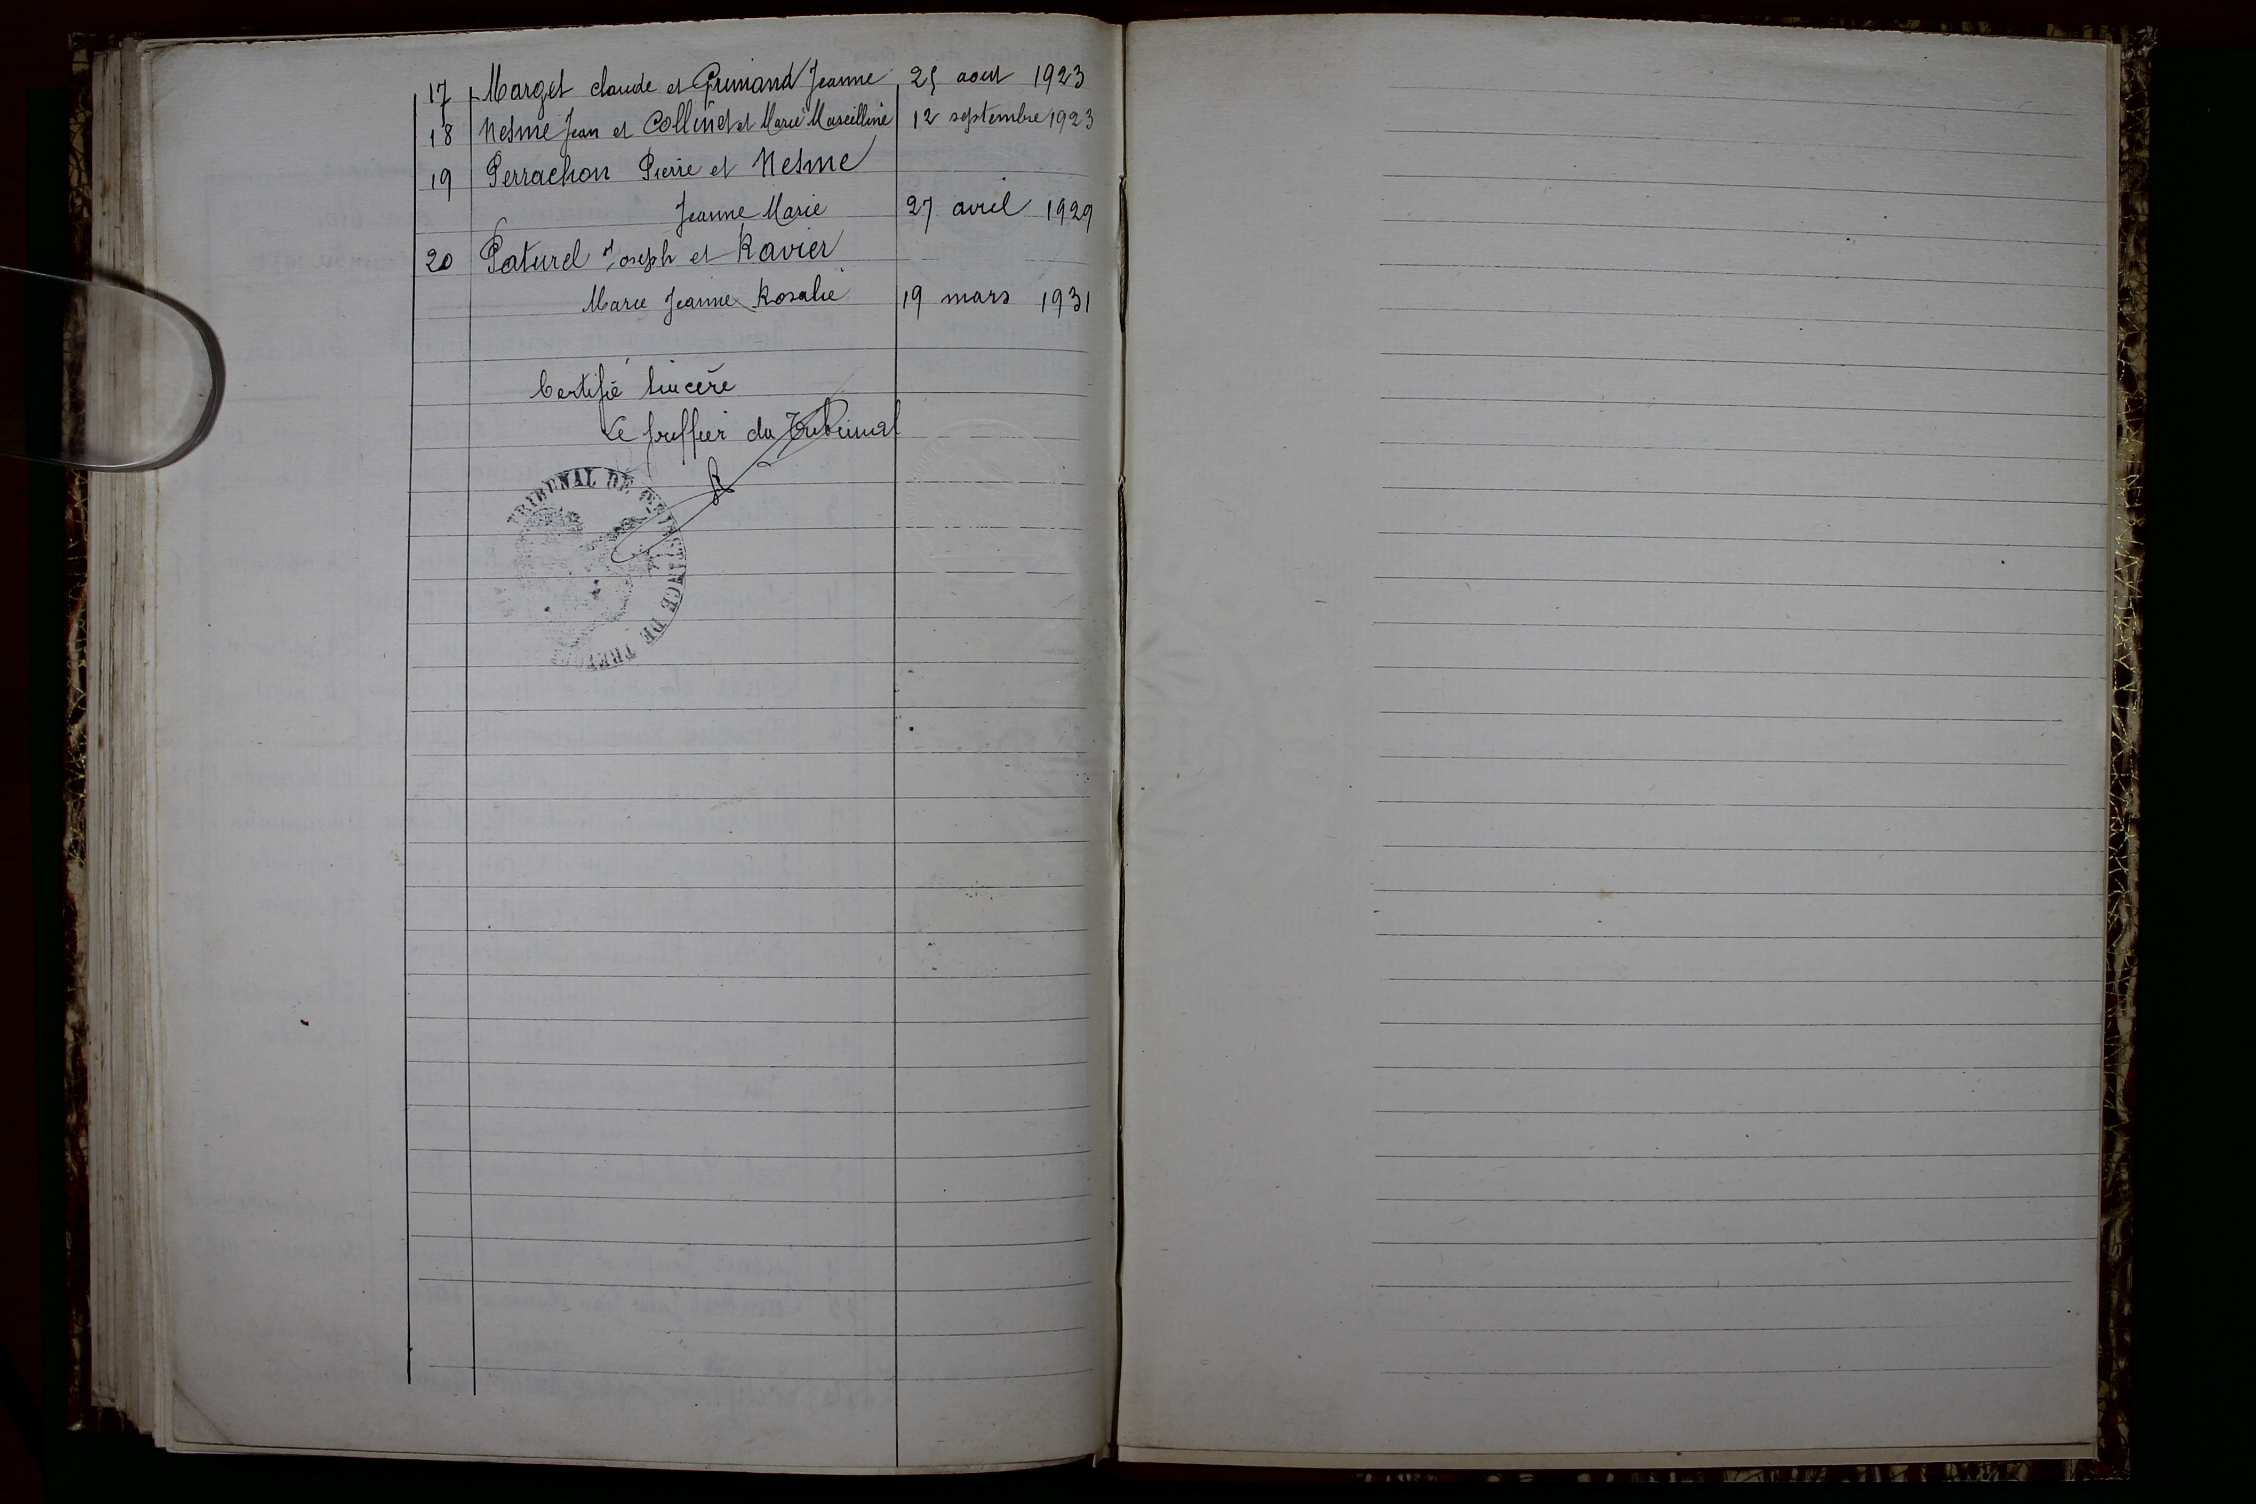 17 Marget claude et Grimand Jeanne 25 aout 1923
18 Nesme Jean et Collinet et Marie Marcelline 12 septembre 1923
19 Perrachon Pierre et Nesme
Jeanne Marie 27 avril 1929
20 Paturel Joseph et Ravier
Marie Jeanne Rosalie 19 mars 1931
Certifié sincère
Le greffier du Tribunal
TRIBUNAL DE 1RE INSTANCE DE TREVOUX